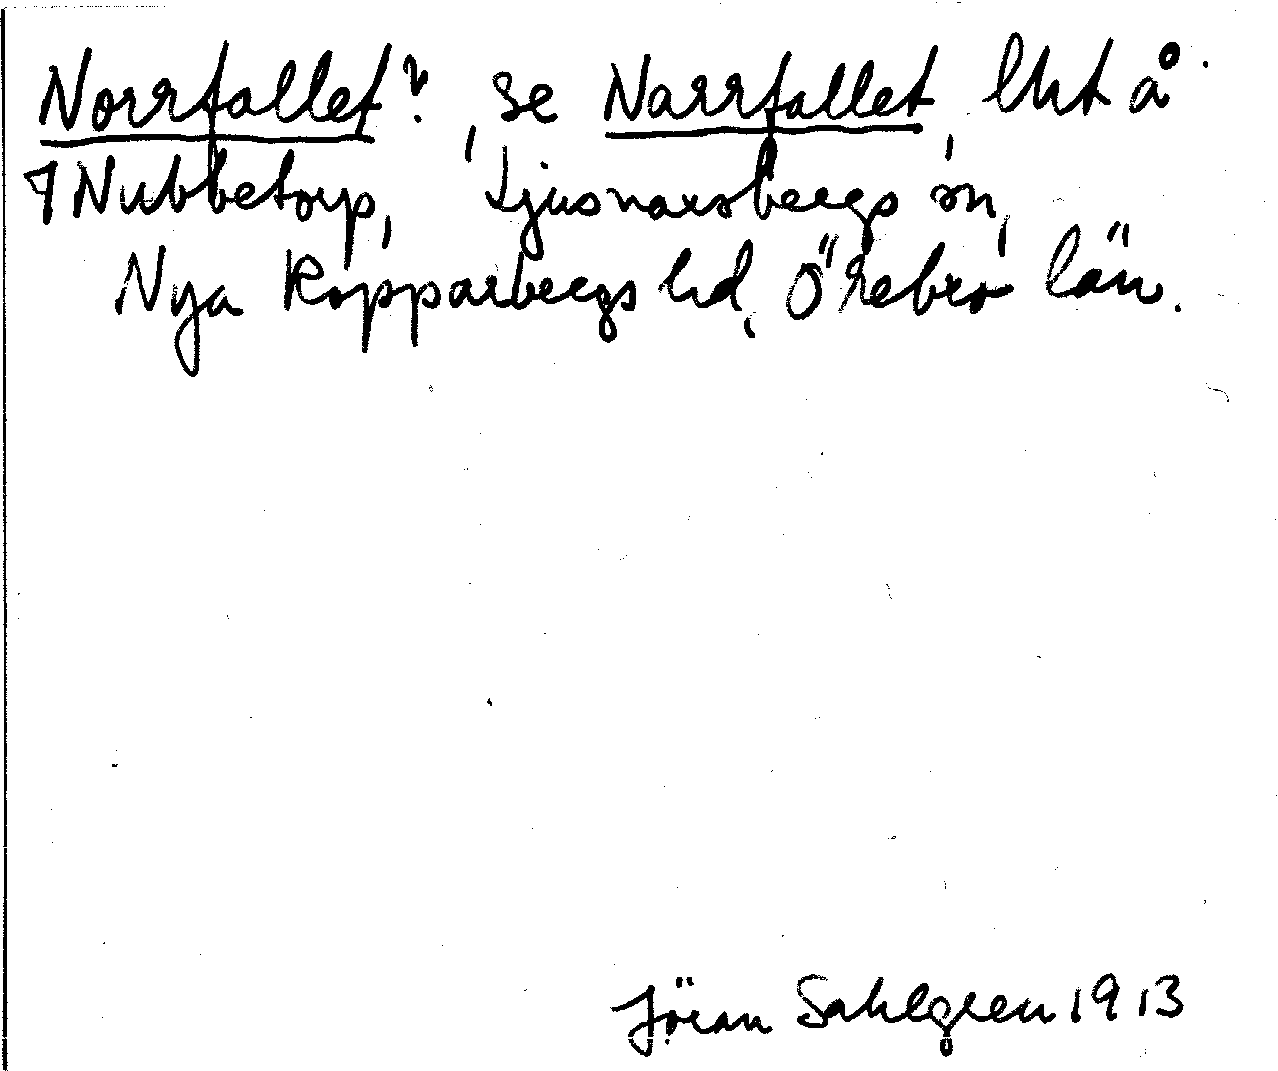 Norrfallet?, se Narrfallet, lht å
Nubbetorp, Ljusnarsbergs sn,
Nya Kopparbergs hd, Örebro län.
Jöran Sahlgren 1913